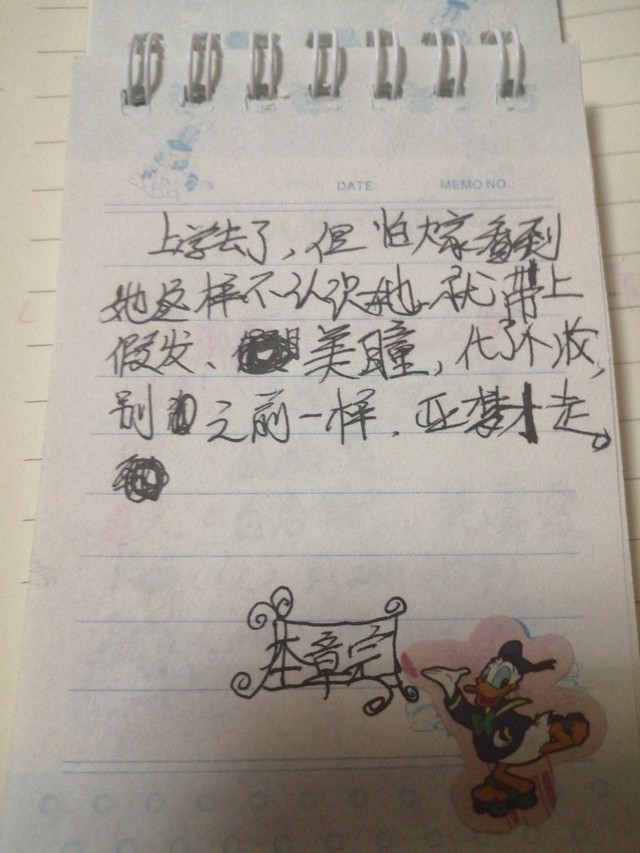 DATE: MEMO NO.:
上学去了，但怕大家看到
她这样不认识她，就带上
假发、美瞳，化了个妆，
别之前一样，亚梦才走。
本章完